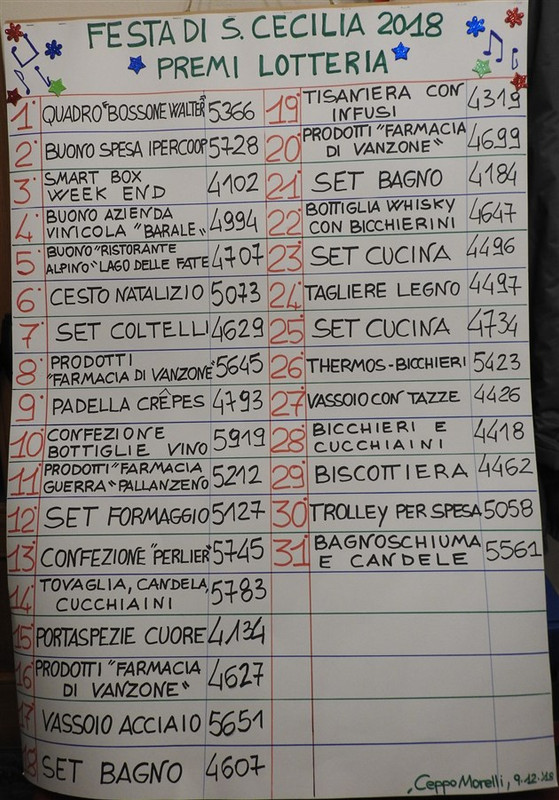 FESTA DI S. CECILIA 2018
PREMI LOTTERIA
1° QUADRO "BOSSONE WALTER" 5366
2° BUONO SPESA IPERCOOP 5728
3° SMART BOX
WEEK END 4102
4° BUONO AZIENDA
VINICOLA "BARALE" 4994
5° BUONO "RISTORANTE
ALPINO" LAGO DELLE FATE 4707
6° CESTO NATALIZIO 5073
7° SET COLTELLI 4629
8° PRODOTTI
"FARMACIA DI VANZONE" 5645
9° PADELLA CRÊPES 4793
10° CONFEZIONE
BOTTIGLIE VINO 5919
11° PRODOTTI "FARMACIA
GUERRA" PALLANZENO 5212
12° SET FORMAGGIO 5127
13° CONFEZIONE "PERLIER" 5745
14° TOVAGLIA, CANDELA,
CUCCHIAINI 5783
15° PORTASPEZIE CUORE 4134
16° PRODOTTI "FARMACIA
DI VANZONE" 4627
17° VASSOIO ACCIAIO 5651
18° SET BAGNO 4607
19° TISANIERA CON
INFUSI 4319
20° PRODOTTI "FARMACIA
DI VANZONE" 4699
21° SET BAGNO 4184
22° BOTTIGLIA WHISKY
CON BICCHIERINI 4647
23° SET CUCINA 4496
24° TAGLIERE LEGNO 4497
25° SET CUCINA 4734
26° THERMOS-BICCHIERI 5423
27° VASSOIO CON TAZZE 4426
28° BICCHIERI E
CUCCHIAINI 4418
29° BISCOTTIERA 4462
30° TROLLEY PER SPESA 5058
31° BAGNOSCHIUMA
E CANDELE 5561
Ceppo Morelli, 9.12.'18